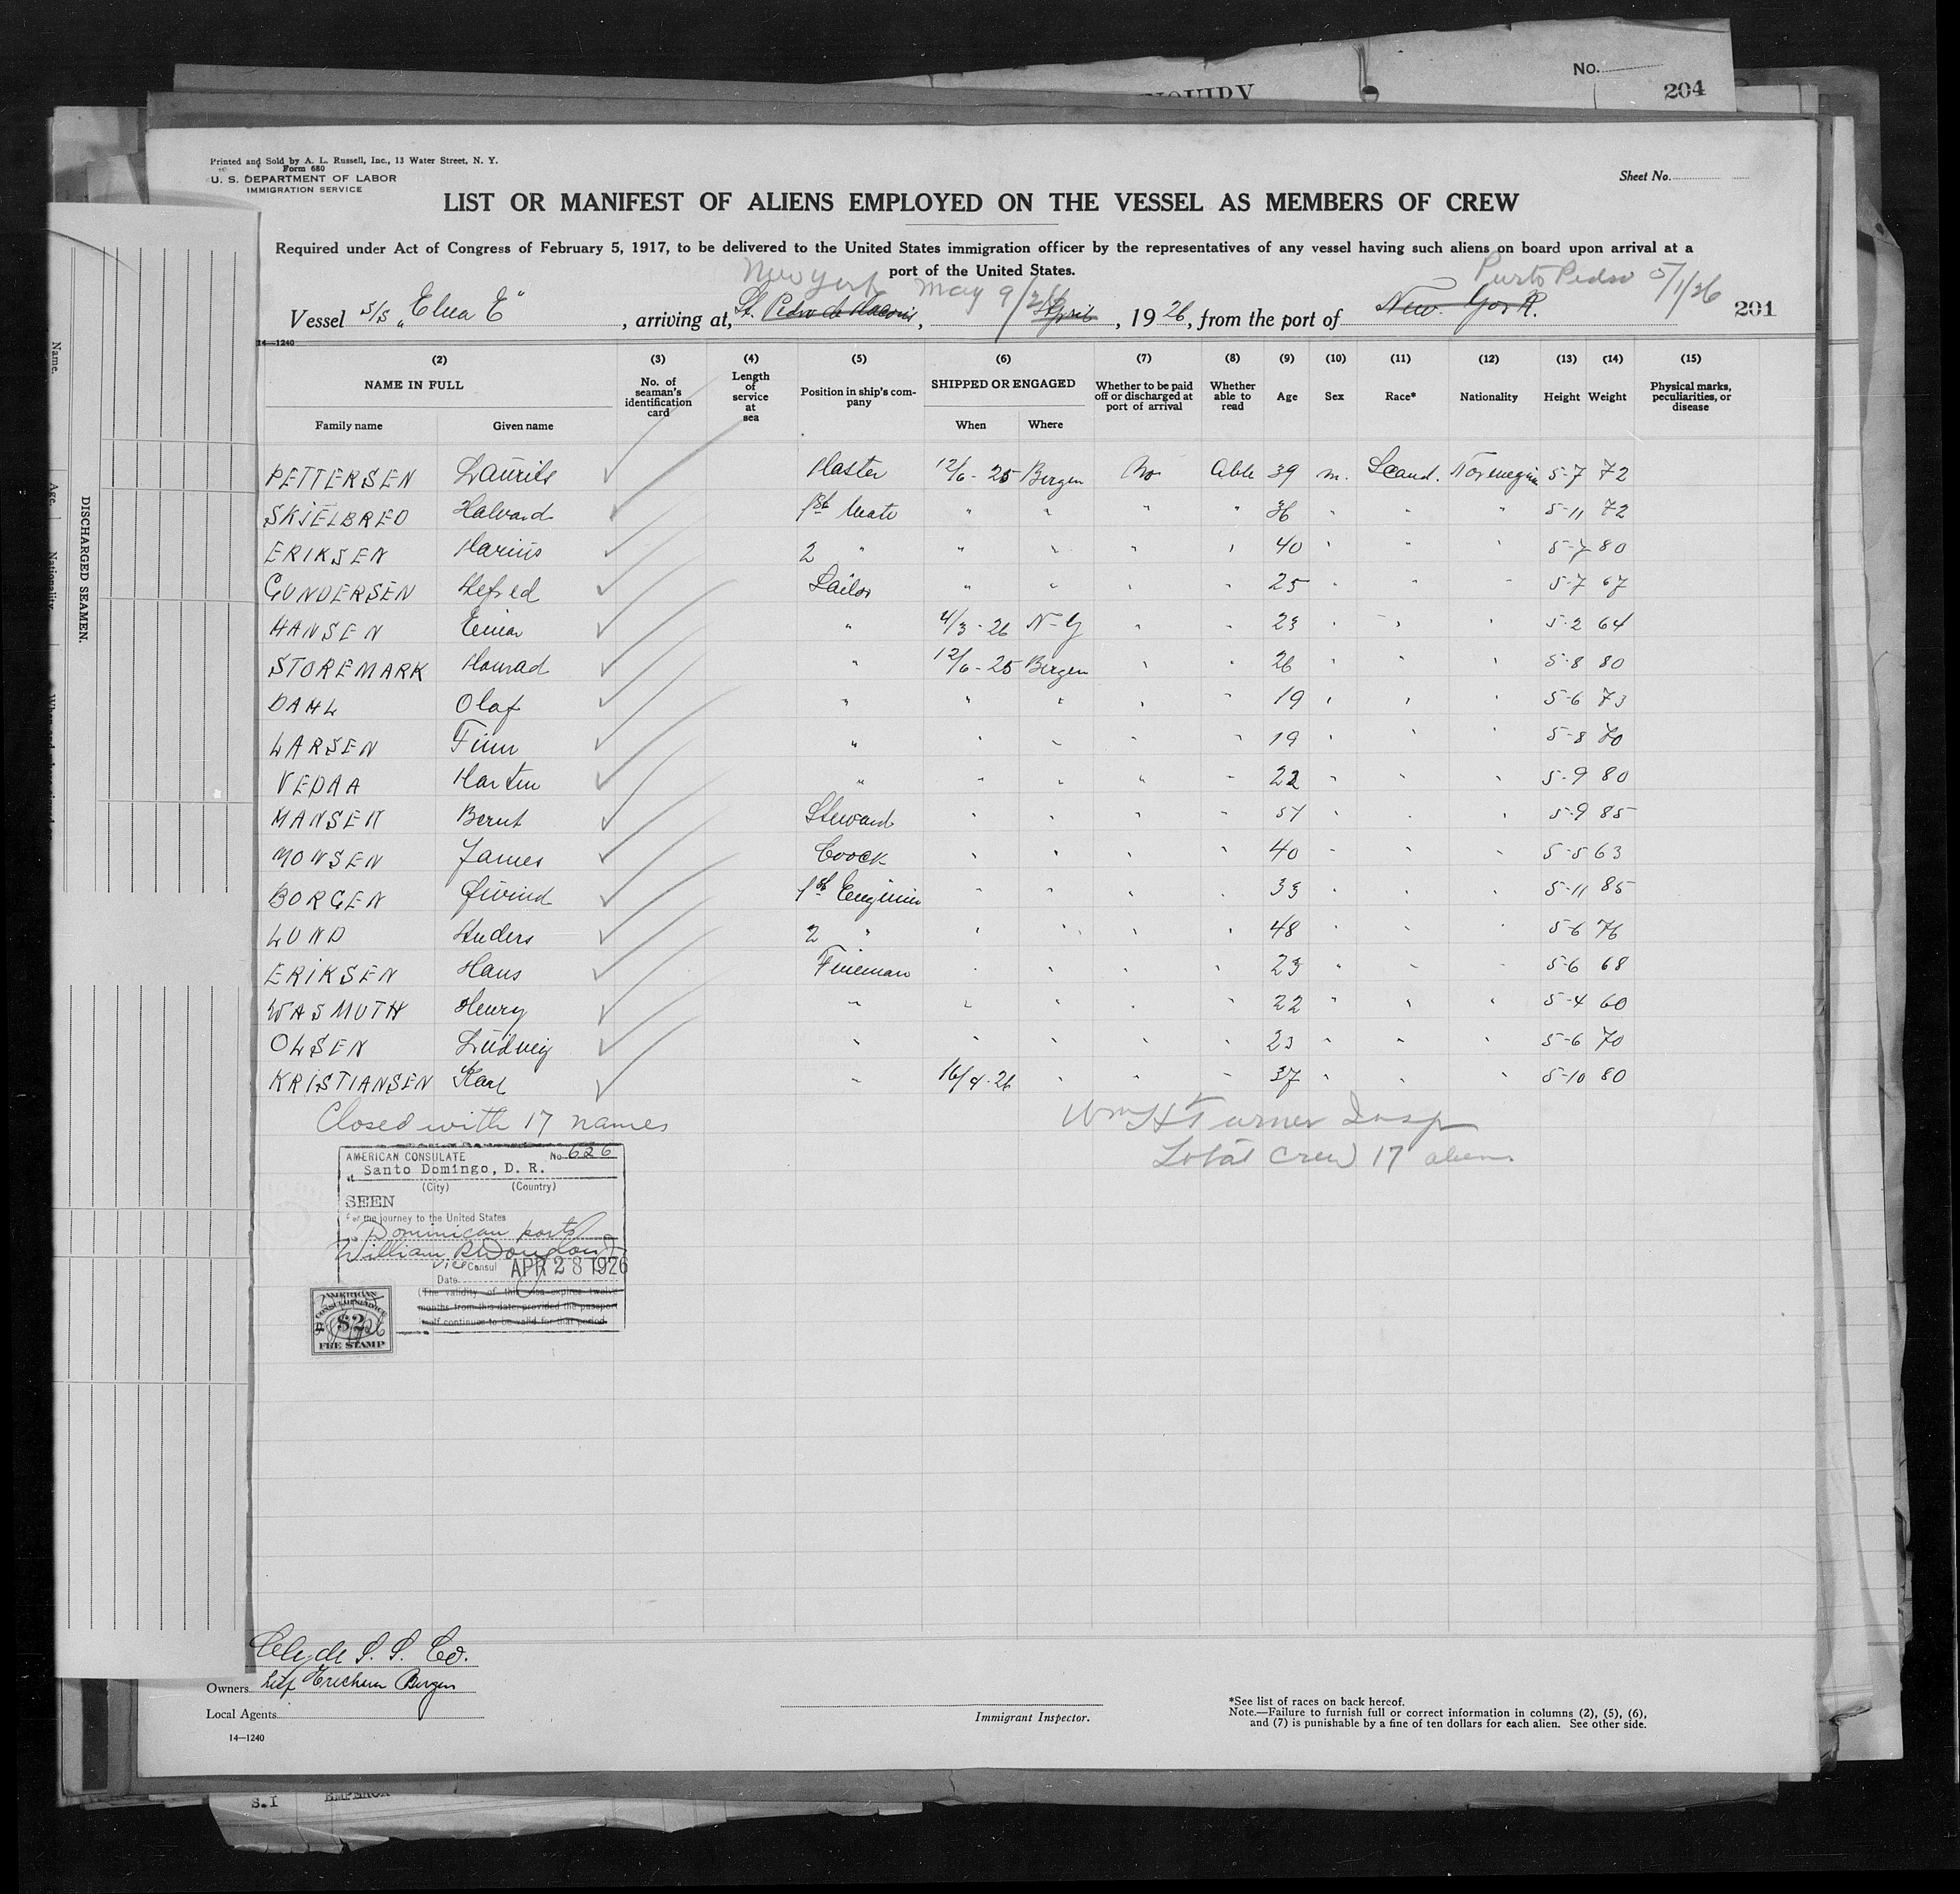 No.
204
NQUIRY
Printed and Sold by A. L. Russell, Inc., 13 Water Street, N. Y.
Form 680
U. S. DEPARTMENT OF LABOR
IMMIGRATION SERVICE
Sheet No.
LIST OR MANIFEST OF ALIENS EMPLOYED ON THE VESSEL AS MEMBERS OF CREW
Required under Act of Congress of February 5, 1917, to be delivered to the United States immigration officer by the representatives of any vessel having such aliens on board upon arrival at a
port of the United States.
New York May 9/26 Purto Pedro 5/1/26
Vessel S/S "Elna E" , arriving at, St. Pedro de Macoris , April , 1926, from the port of New York. 201
14—1240
(2) (3) (4) (5) (6) (7) (8) (9) (10) (11) (12) (13) (14) (15)
NAME IN FULL No. of seaman's identification card Length of service at sea Position in ship's company SHIPPED OR ENGAGED Whether to be paid off or discharged at port of arrival Whether able to read Age Sex Race* Nationality Height Weight Physical marks, peculiarities, or disease
Family name Given name When Where
PETTERSEN Laurits Master 12/6-25 Bergen No Able 39 m. Scand. Norwegian 5-7 72
SKJELBRED Halvard 1st Mate " " " " 36 " " " 5-11 72
ERIKSEN Marius 2 " " " " " 40 " " " 5-7 80
GUNDERSEN Alfred Sailor " " " " 25 " " " 5-7 67
HANSEN Einar " 4/3-26 N-Y " " 23 " " " 5-2 64
STOREMARK Konrad " 12/6-25 Bergen " " 26 " " " 5-8 80
DAHL Olaf " " " " " 19 " " " 5-6 73
LARSEN Finn " " " " " 19 " " " 5-8 70
VEDAA Martin " " " " " 22 " " " 5-9 80
HANSEN Bernt Steward " " " " 57 " " " 5-9 85
MONSEN James Coock " " " " 40 " " " 5-5 63
BORGEN Øivind 1st Enginier " " " " 33 " " " 5-11 85
LUND Anders 2 " " " " " 48 " " " 5-6 76
ERIKSEN Hans Fireman " " " " 23 " " " 5-6 68
WASMUTH Henry " " " " " 22 " " " 5-4 60
OLSEN Ludvig " " " " " 23 " " " 5-6 70
KRISTIANSEN Karl " 16/4-26 " " " 37 " " " 5-10 80
Closed with 17 names
Wm H Turner Insp
Total Crew 17 aliens
AMERICAN CONSULATE No. 626
at Santo Domingo, D. R.
(City) (Country)
SEEN
For the journey to the United States
Dominican ports
William B Douglas Jr
Vice Consul
Date APR 28 1926
(The validity of this visa expires twelve
months from this date provided the passport
itself continues to be valid for that period.
AMERICAN
CONSULAR SERVICE
$2
FEE STAMP
Name.
Age.
Nationality
DISCHARGED SEAMEN.
Clyde S. S. Co.
Owners Leif Erichsen Bergen
Local Agents
14—1240
Immigrant Inspector.
*See list of races on back hereof.
Note.—Failure to furnish full or correct information in columns (2), (5), (6),
and (7) is punishable by a fine of ten dollars for each alien. See other side.
S.I
EMPEROR